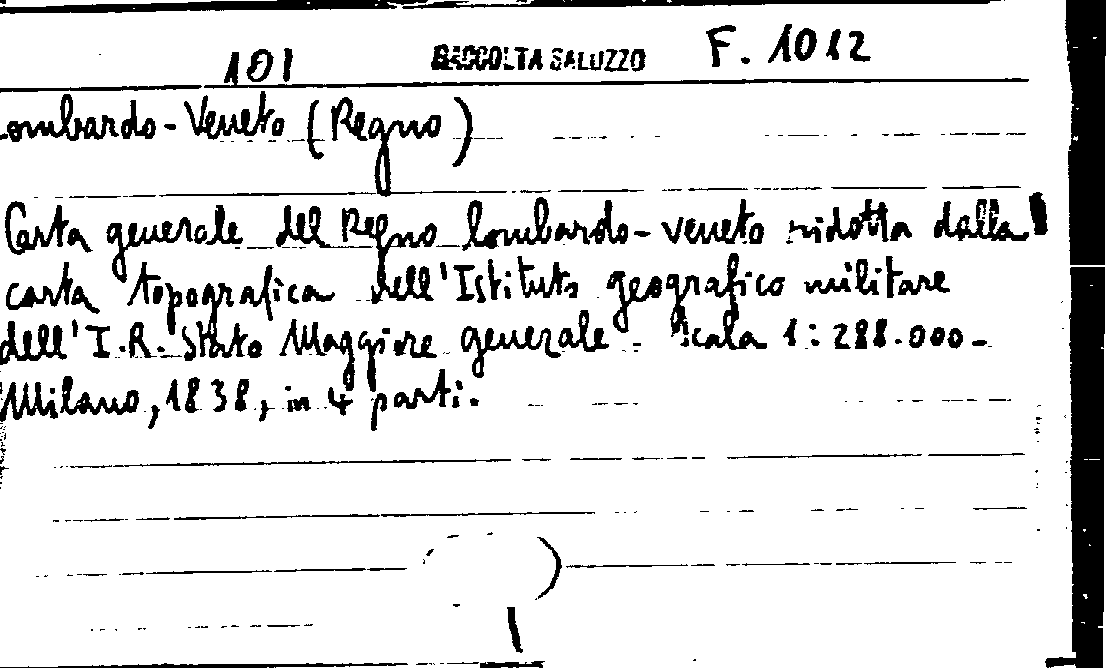 101 RACCOLTA SALUZZO F. 1012
Lombardo-Veneto (Regno)
Carta generale del Regno lombardo-veneto ridotta dalla
carta topografica dell'Istituto geografico militare
dell'I.R. Stato Maggiore generale - Scala 1:288.000-
Milano, 1838, in 4 parti.